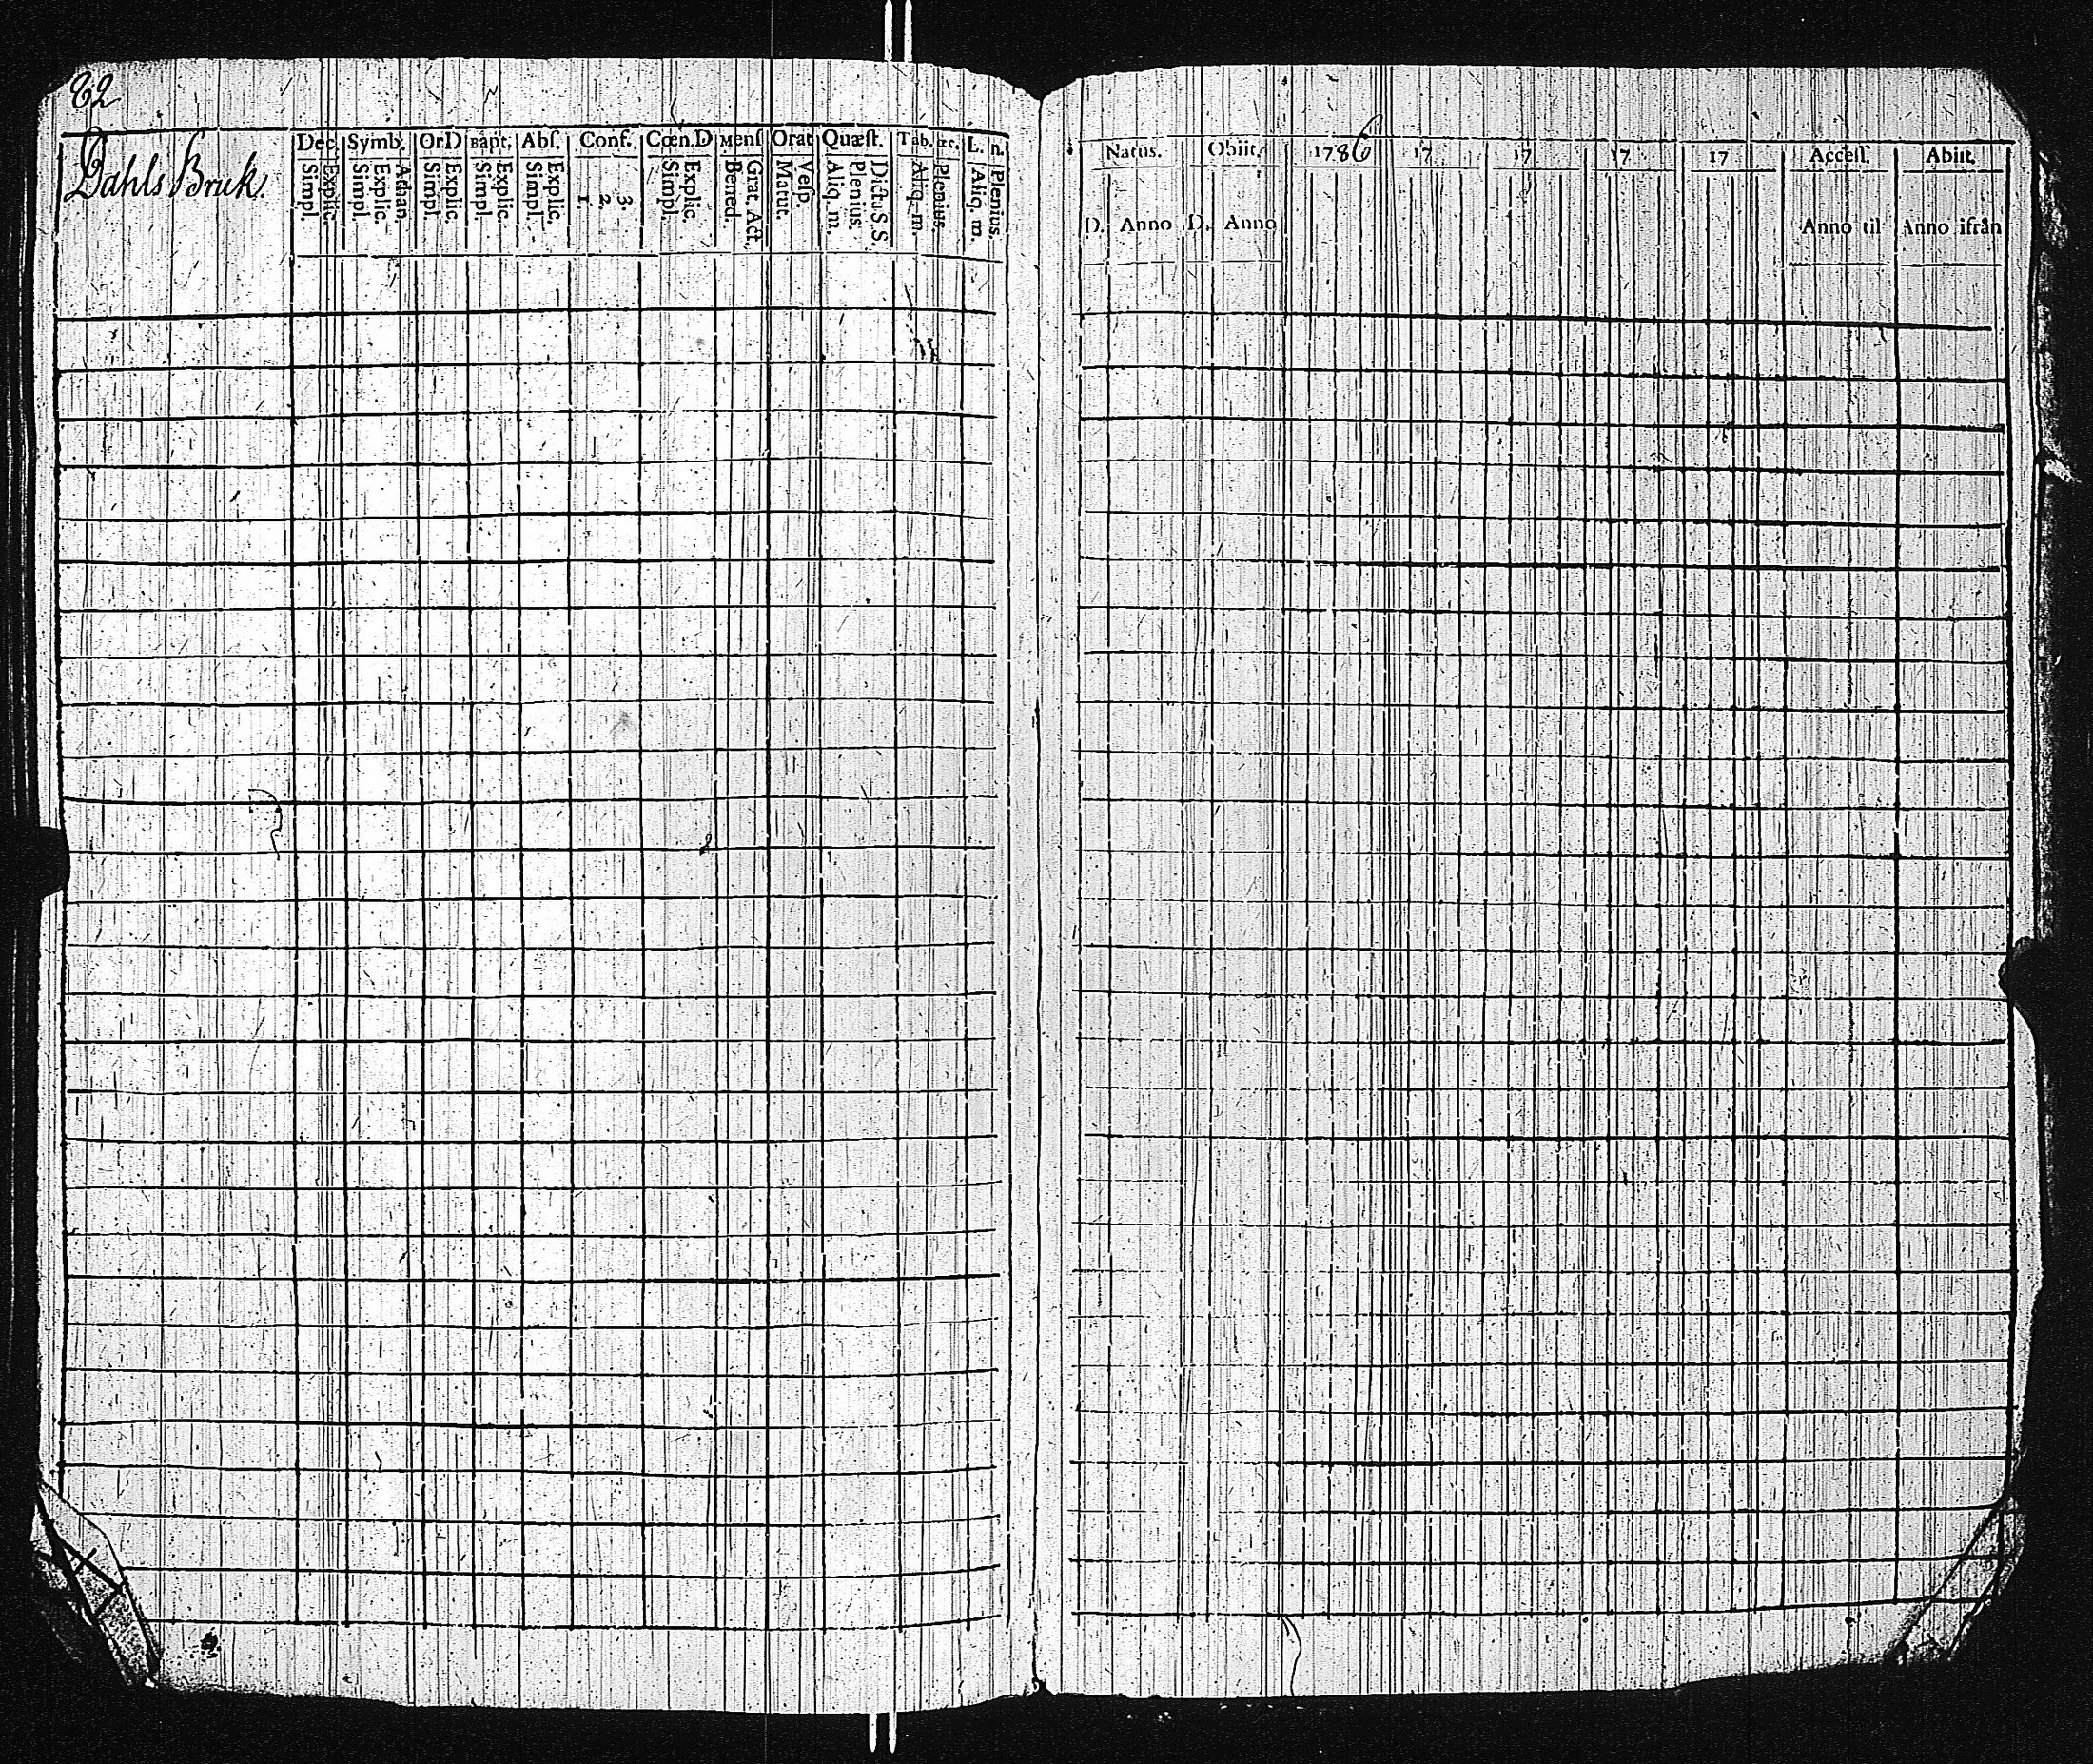 82
Dahls Bruk.
Dec. Symb. OrD Bapt. Abſ. Conf. Cœn.D Menſ Orat Quæſt. Tab. &c. L. n.
Simpl. Explic. Simpl. Explic. Athan. Simpl. Explic. Simpl. Explic. Simpl. Explic. 1. 2. 3. Simpl. Explic. Bened. Grat. Act. Matut. Veſp. Aliq. m. Plenius. Dicta S.S. Aliq. m. Plenius. Aliq. m. Plenius.
Natus. Obiit. 1786 17 17 17 17 Acceſſ. Abiit.
D. Anno D. Anno Anno til Anno ifrån